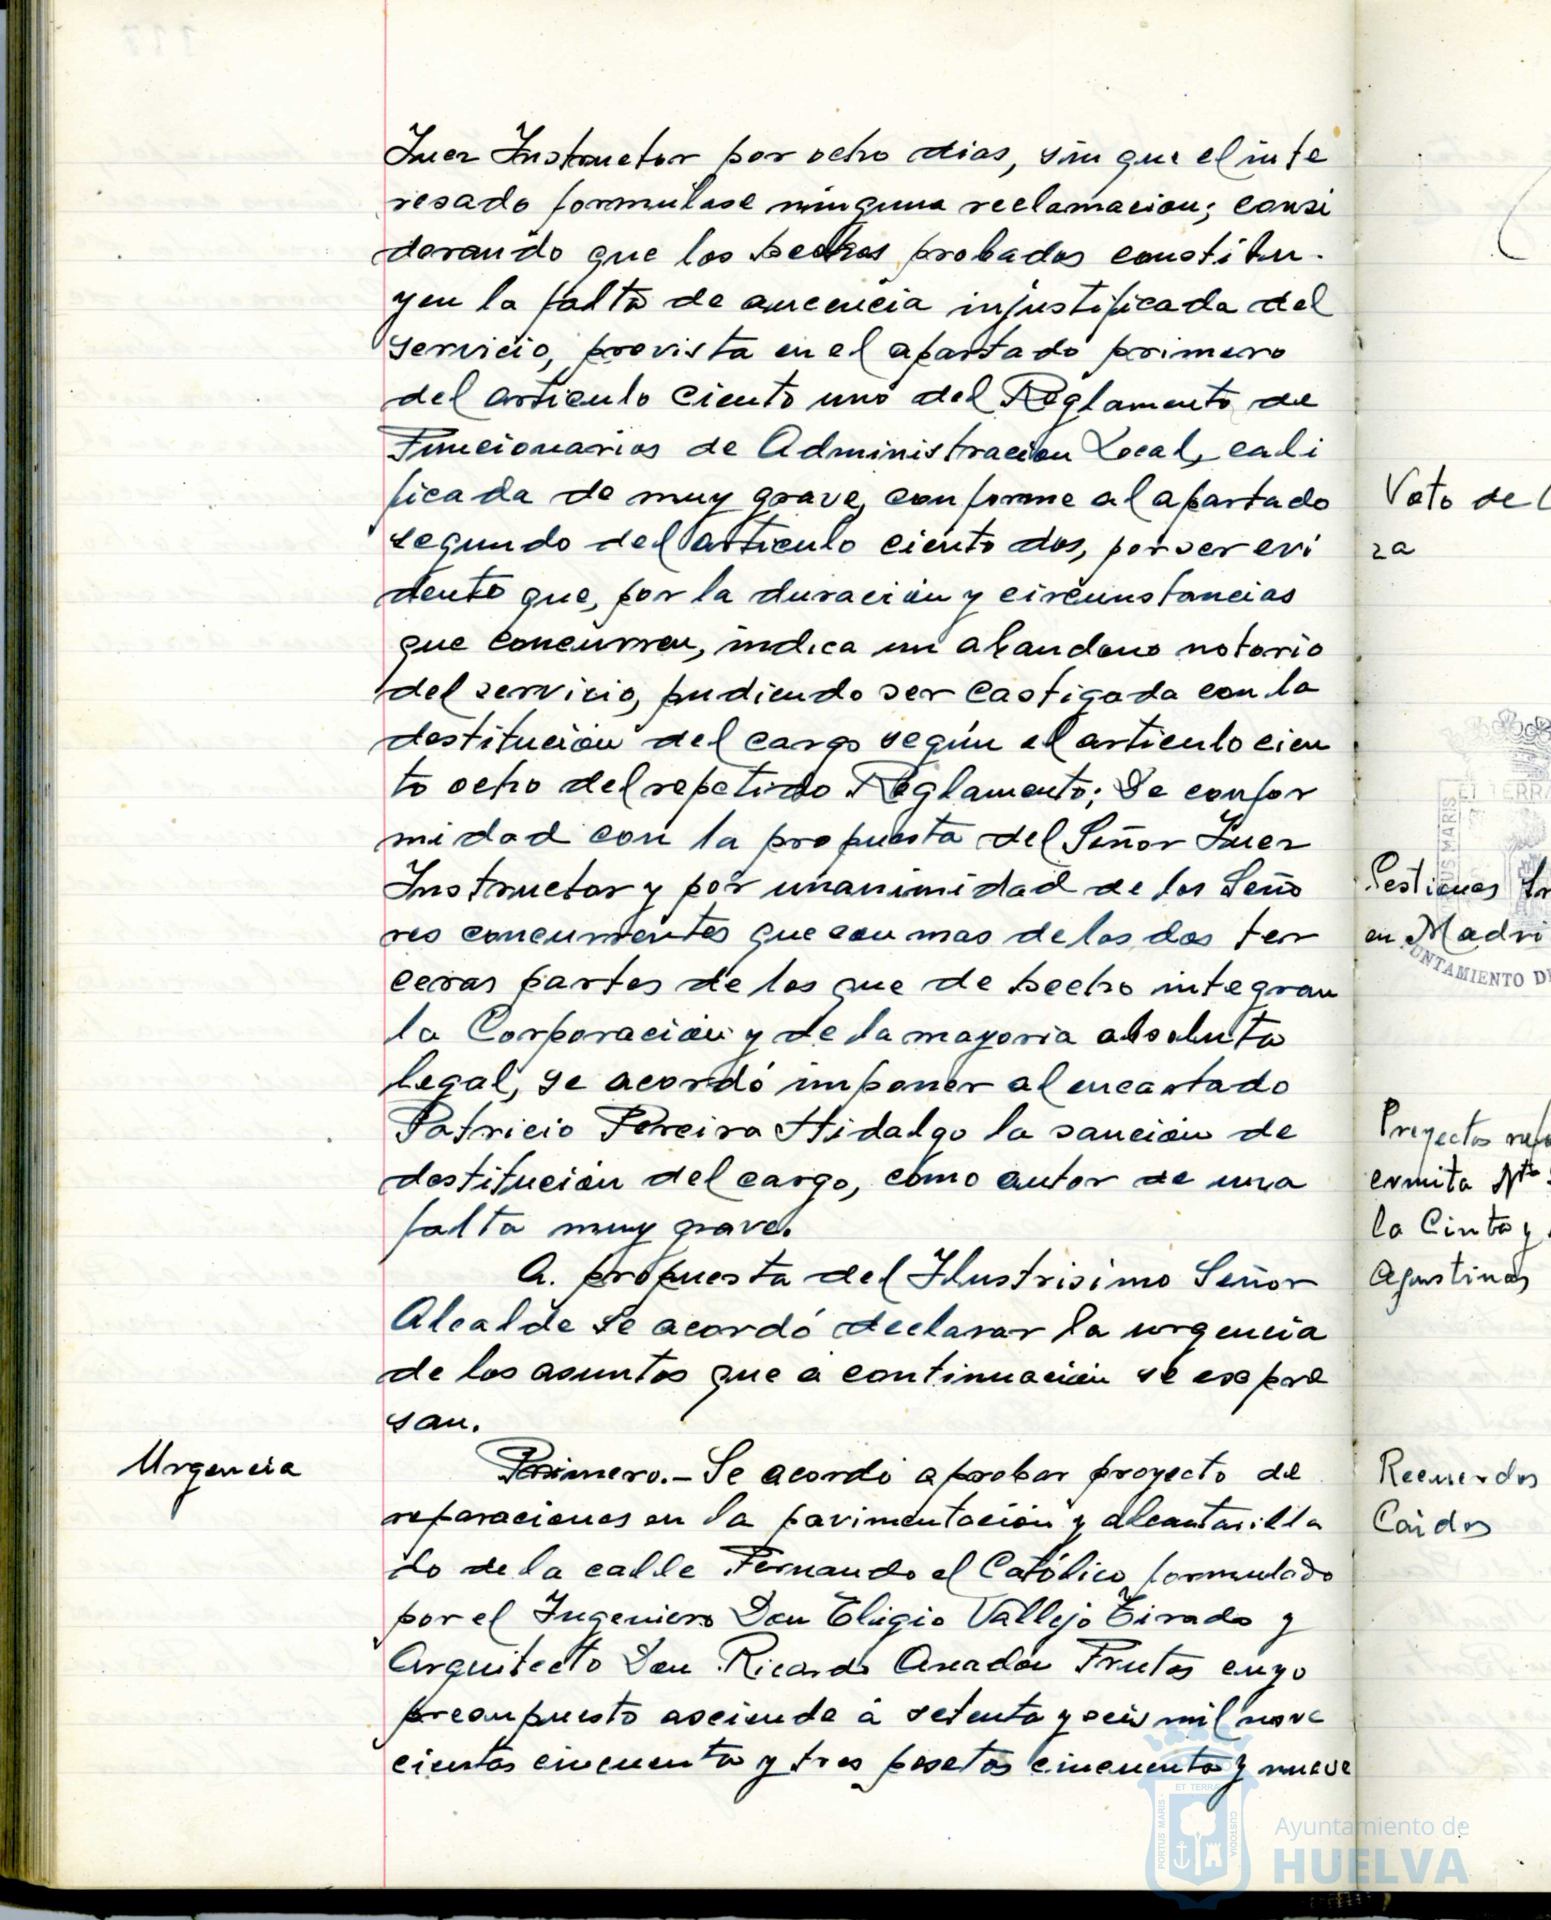 Juez Instructor por ocho dias, sin que el inte
resado formulase ninguna reclamacion; consi
derando que los hechos probados constitu-
yen la falta de aucencia injustificada del
servicio, prevista en el apartado primero
del articulo ciento uno del Reglamento de
Funcionarios de Administracion Local, cali
ficada de muy grave, conforme al apartado
segundo del articulo ciento dos, por ser evi
dente que, por la duración y circunstancias
que concurren, indica un abandono notorio
del servicio, pudiendo ser castigada con la
destitución del cargo según el articulo cien
to ocho del repetido Reglamento; De confor
midad con la propuesta del Señor Juez
Instructor y por unanimidad de los Seño
res concurrentes que son mas de las dos ter
ceras partes de los que de hecho integran
la Corporación y de la mayoria absoluta
legal, se acordó imponer al encartado
Patricio Pereira Hidalgo la sanción de
destitución del cargo, como autor de una
falta muy grave.
A propuesta del Ilustrisimo Señor
Alcalde se acordó declarar la urgencia
de los asuntos que a continuación se expre
san.
Urgencia
Primero.- Se acordó aprobar proyecto de
reparaciones en la pavimentación y alcantarilla
do de la calle Fernando el Católico formulado
por el Ingeniero Don Eligio Vallejo Tirado y
Arquitecto Don Ricardo Anadon Frutos cuyo
presupuesto asciende a setenta y seis mil nove
cientas cincuenta y tres pesetas cincuenta y nueve
Voto de
za
Gestiones
en Madri
Proyectos
ermita Ntª
la Cinta y
Agustinas
Recuerdos
Caidos
ET TERRA
PORTUS MARIS
CUSTODIA
AYUNTAMIENTO DE
Ayuntamiento de
HUELVA